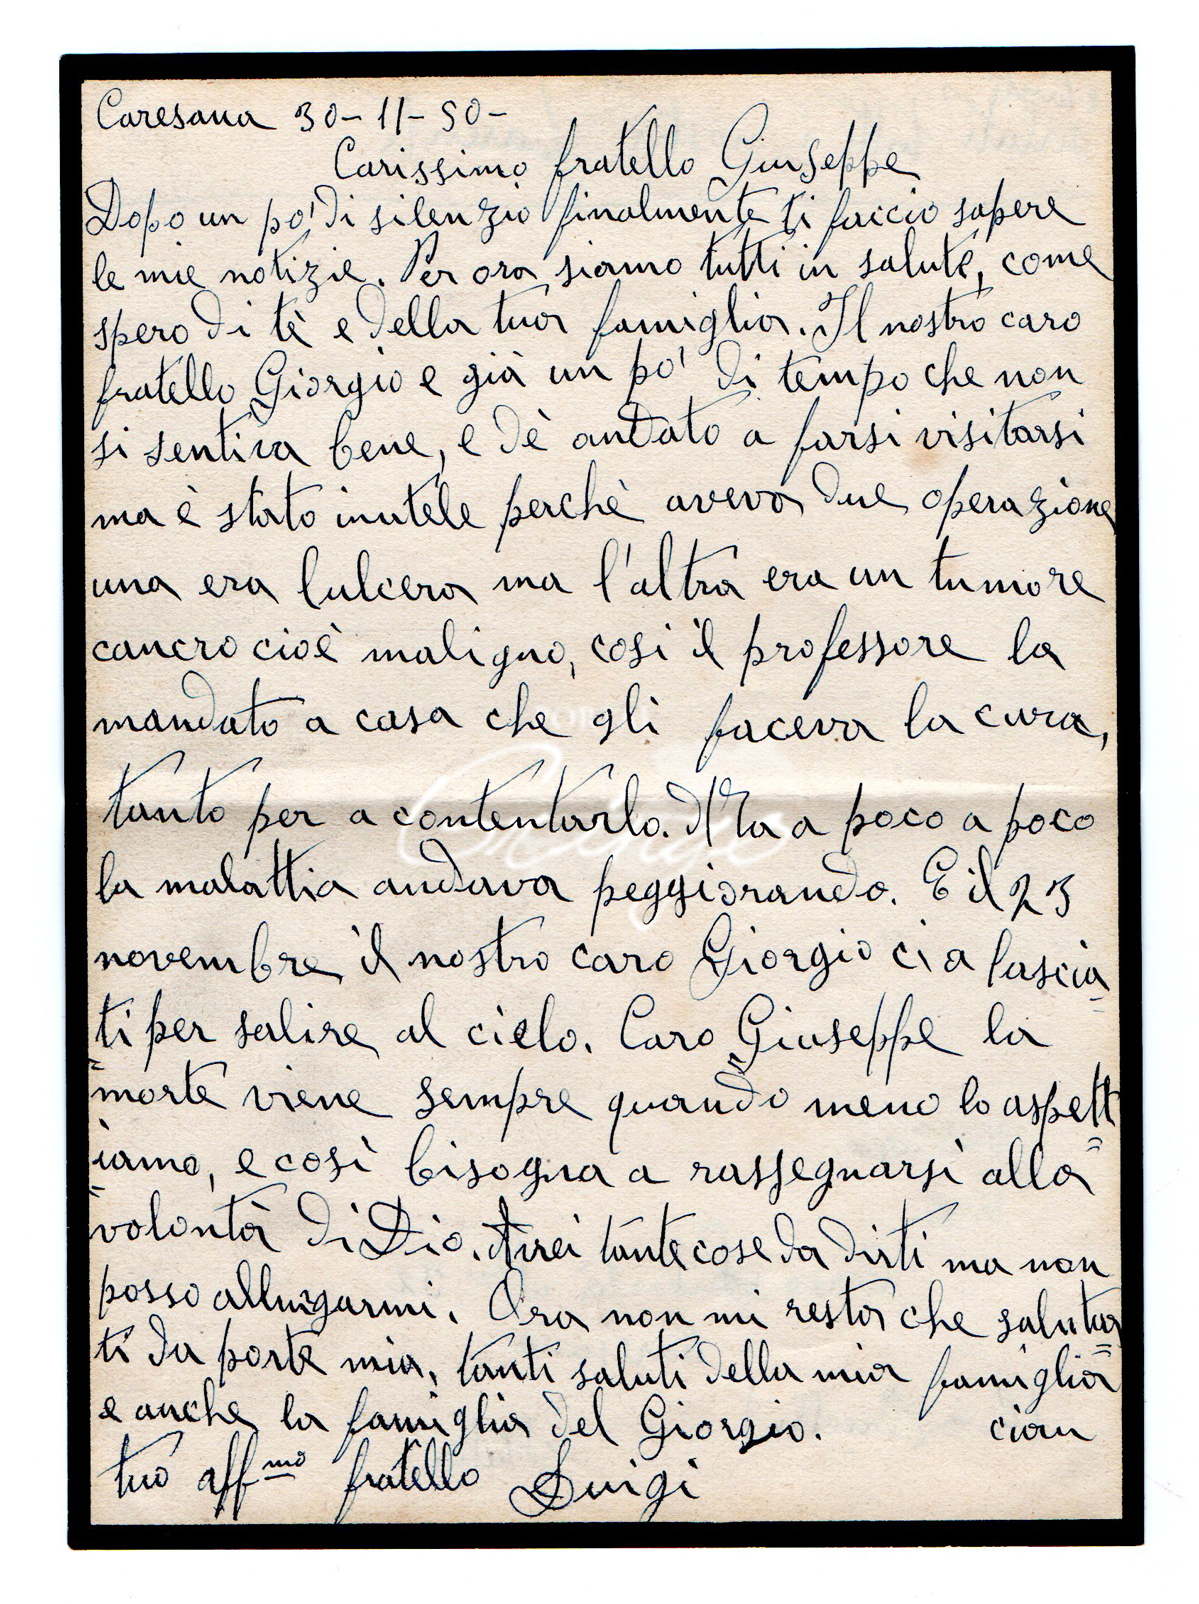 Caresana 30-11-50-
Carissimo fratello Giuseppe
Dopo un po' di silenzio finalmente ti faccio sapere
le mie notizie. Per ora siamo tutti in salute, come
spero di tè e della tua famiglia. Il nostro caro
fratello Giorgio e già un po' di tempo che non
si sentiva bene, e dè andato a farsi visitarsi
ma è stato inutele perchè aveva due operazione
una era lulcera ma l'altra era un tumore
cancro cioè maligno, cosi il professore la
mandato a casa che gli faceva la cura,
tanto per a contentarlo. Ma a poco a poco
la malattia andava peggiorando. E il 23
novembre il nostro caro Giorgio ci a lascia
ti per salire al cielo. Caro Giuseppe la
morte viene sempre quando meno lo aspett
iamo, e così bisogna a rassegnarsi alla
volontà di Dio. Avrei tante cose da dirti ma non
posso allungarmi. Ora non mi resta che salutar
ti da parte mia, tanti saluti della mia famiglia
e anche la famiglia del Giorgio. ciau
tuo aff.mo fratello Luigi